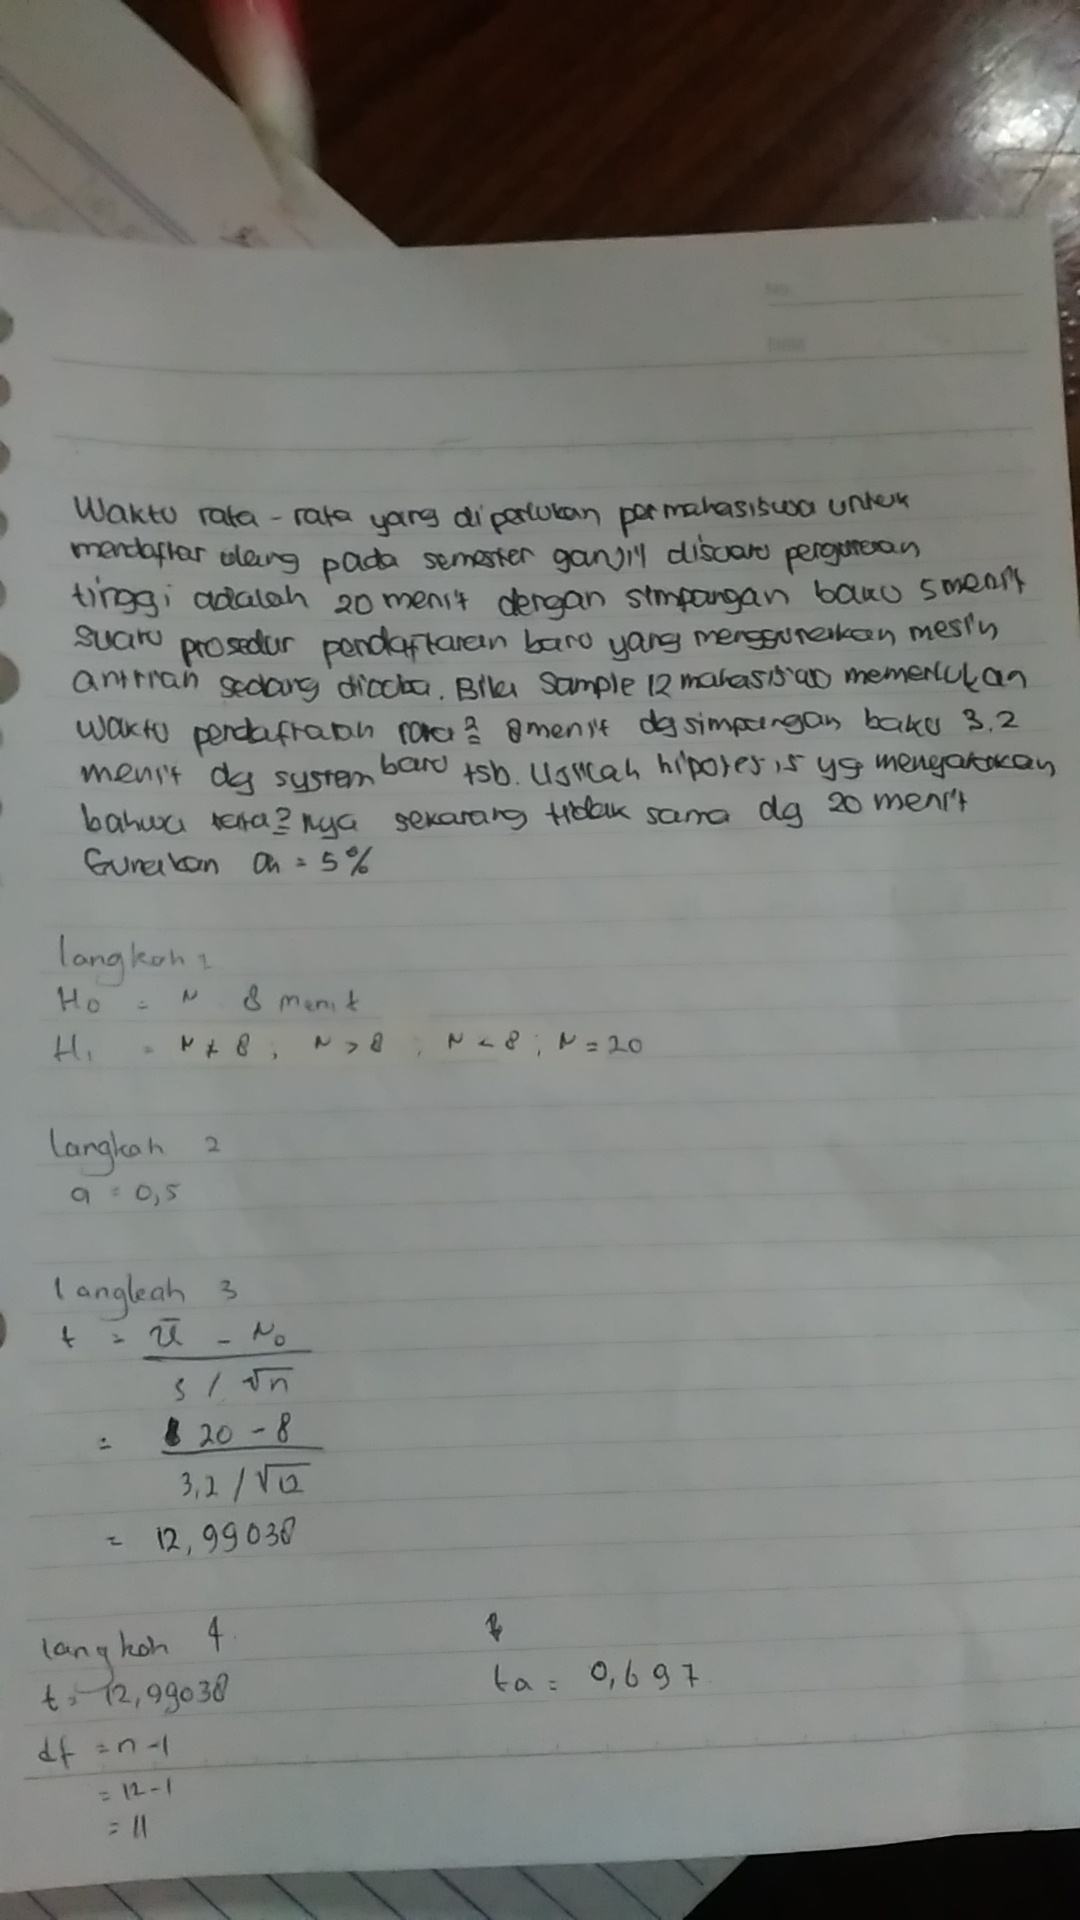 Waktu rata-rata yang diperlukan per mahasiswa untuk
mendaftar ulang pada semester ganjil disuatu perguruan
tinggi adalah 20 menit dengan simpangan baku 5 menit
suatu prosedur pendaftaran baru yang menggunakan mesin
antrian sedang dicoba. Bila sample 12 mahasiswa memerlukan
waktu pendaftaran rata2 8 menit dg simpangan baku 3.2
menit dg system baru tsb. Ujilah hipotesis yg mengatakan
bahwa rata2 nya sekarang tidak sama dg 20 menit
Gunakan = 5%
langkah 1
H0 = μ 8 menit
H1 = μ ≠ 8 ; μ > 8 ; μ < 8 ; μ = 20
langkah 2
a = 0,5
langkah 3
t = x̄ - μ0
s / √n
= 20 - 8
3,2 / √12
= 12,99038
langkah 4
ta = 0,697
t = 12,99038
df = n-1
= 12-1
= 11